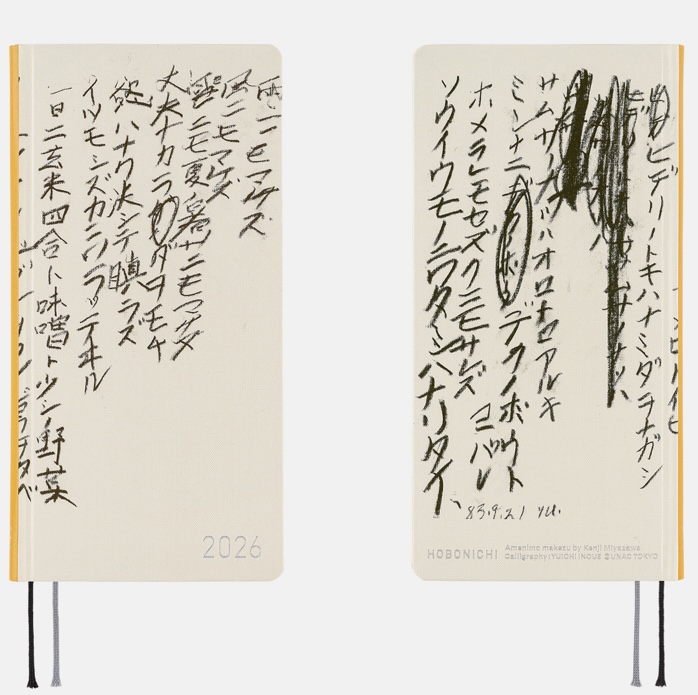 雨ニモマケズ
風ニモマケズ
雪ニモ夏ノ暑サニモマケヌ
丈夫ナカラダヲモチ
慾ハナク决シテ瞋ラズ
イツモシズカニワラッテヰル
一日ニ玄米四合ト味噌ト少シノ野菜
2026
ヒデリノトキハナミダヲナガシ
サムサノナツハオロオロアルキ
ミンナニデクノボウト
ヨバレ
ホメラレモセズクニモサレズ
ソウイウモノニワタシハナリタイ
83.9.21 yu.
HOBONICHI
Amenimo makezu by Kenji Miyazawa
Calligraphy:YUICHI INOUE ©UNAC TOKYO